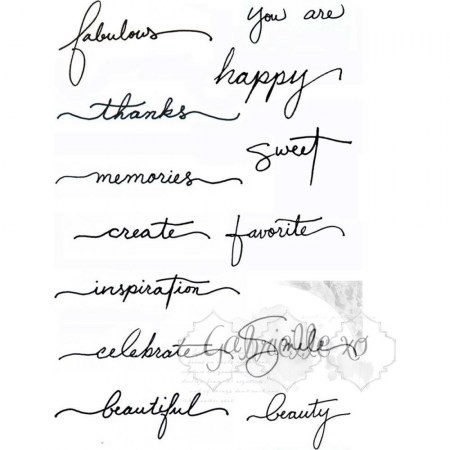 fabulous
You are
happy
thanks
sweet
memories
create
favorite
inspiration
celebrate
Smile xo
beautiful
beauty